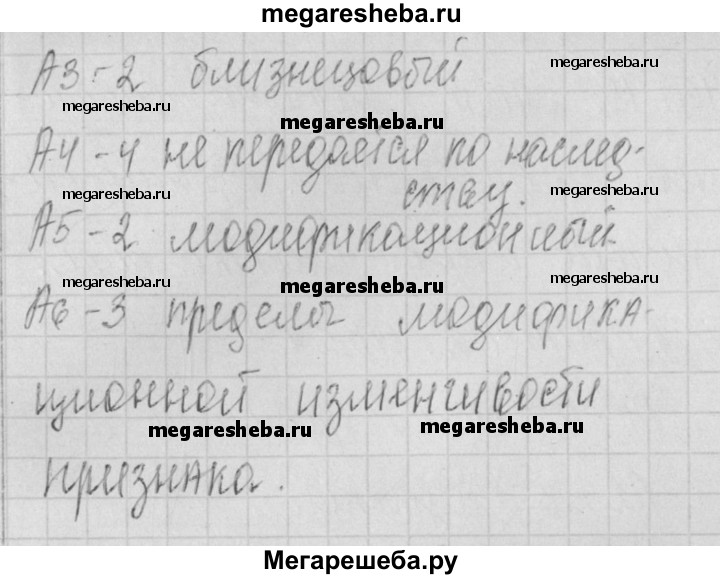 megaresheba.ru
А3-2 близнецовый
megaresheba.ru
megaresheba.ru
megaresheba.ru
А4-4 не передаётся по наслед-
ству.
megaresheba.ru
megaresheba.ru
А5-2 модификационный
megaresheba.ru
megaresheba.ru
megaresheba.ru
А6-3 пределы модифика-
ционной изменчивости
megaresheba.ru
megaresheba.ru
признака.
Мегарешеба.ру